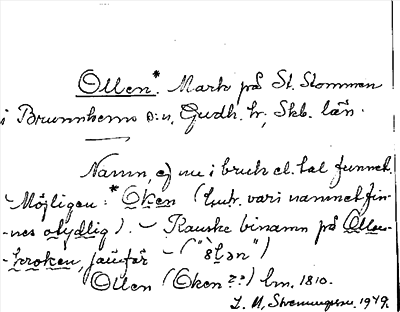 Ollen.* Mark på St. Stommen
i Brunnhems s:n, Gudh. hr, Skb. län.
Namn, ej nu i bruk el. tal funnet.
- Möjligen: *Oken (kub. vari namnet fin-
nes otydlig). - Kanske binamn på Ollen-
kroken, jämför - ("ölən")
Ollen (Oken??) lm. 1810.
1979.